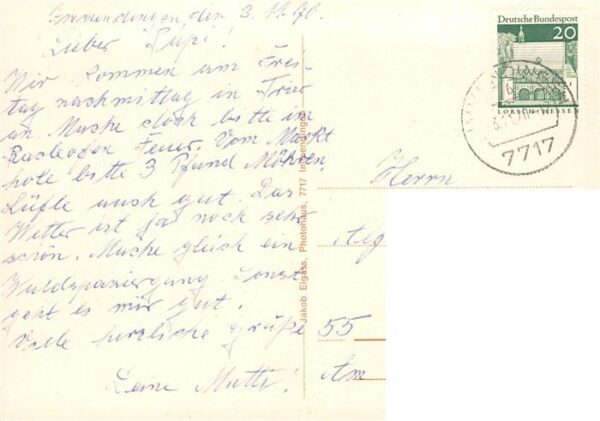 den 3. 11. 70.
Lieber Pupi!
Wir kommen am Frei-
tag nachmittag in Trier
an. Mache doch bitte im
Badeofen Feuer. Vom Markt
hole bitte 3 Pfund Möhren.
Lüfte auch gut. Das
Wetter ist ja noch sehr
schön. Mache gleich ein
Waldspaziergang. Sonst
geht es mir gut.
Viele herzliche Grüße
Deine Mutti!
Jakob Eigass, Photohaus, 7717 Immendingen
Deutsche Bundespost
20
LORSCH/HESSEN
7717
Herrn
55
Am